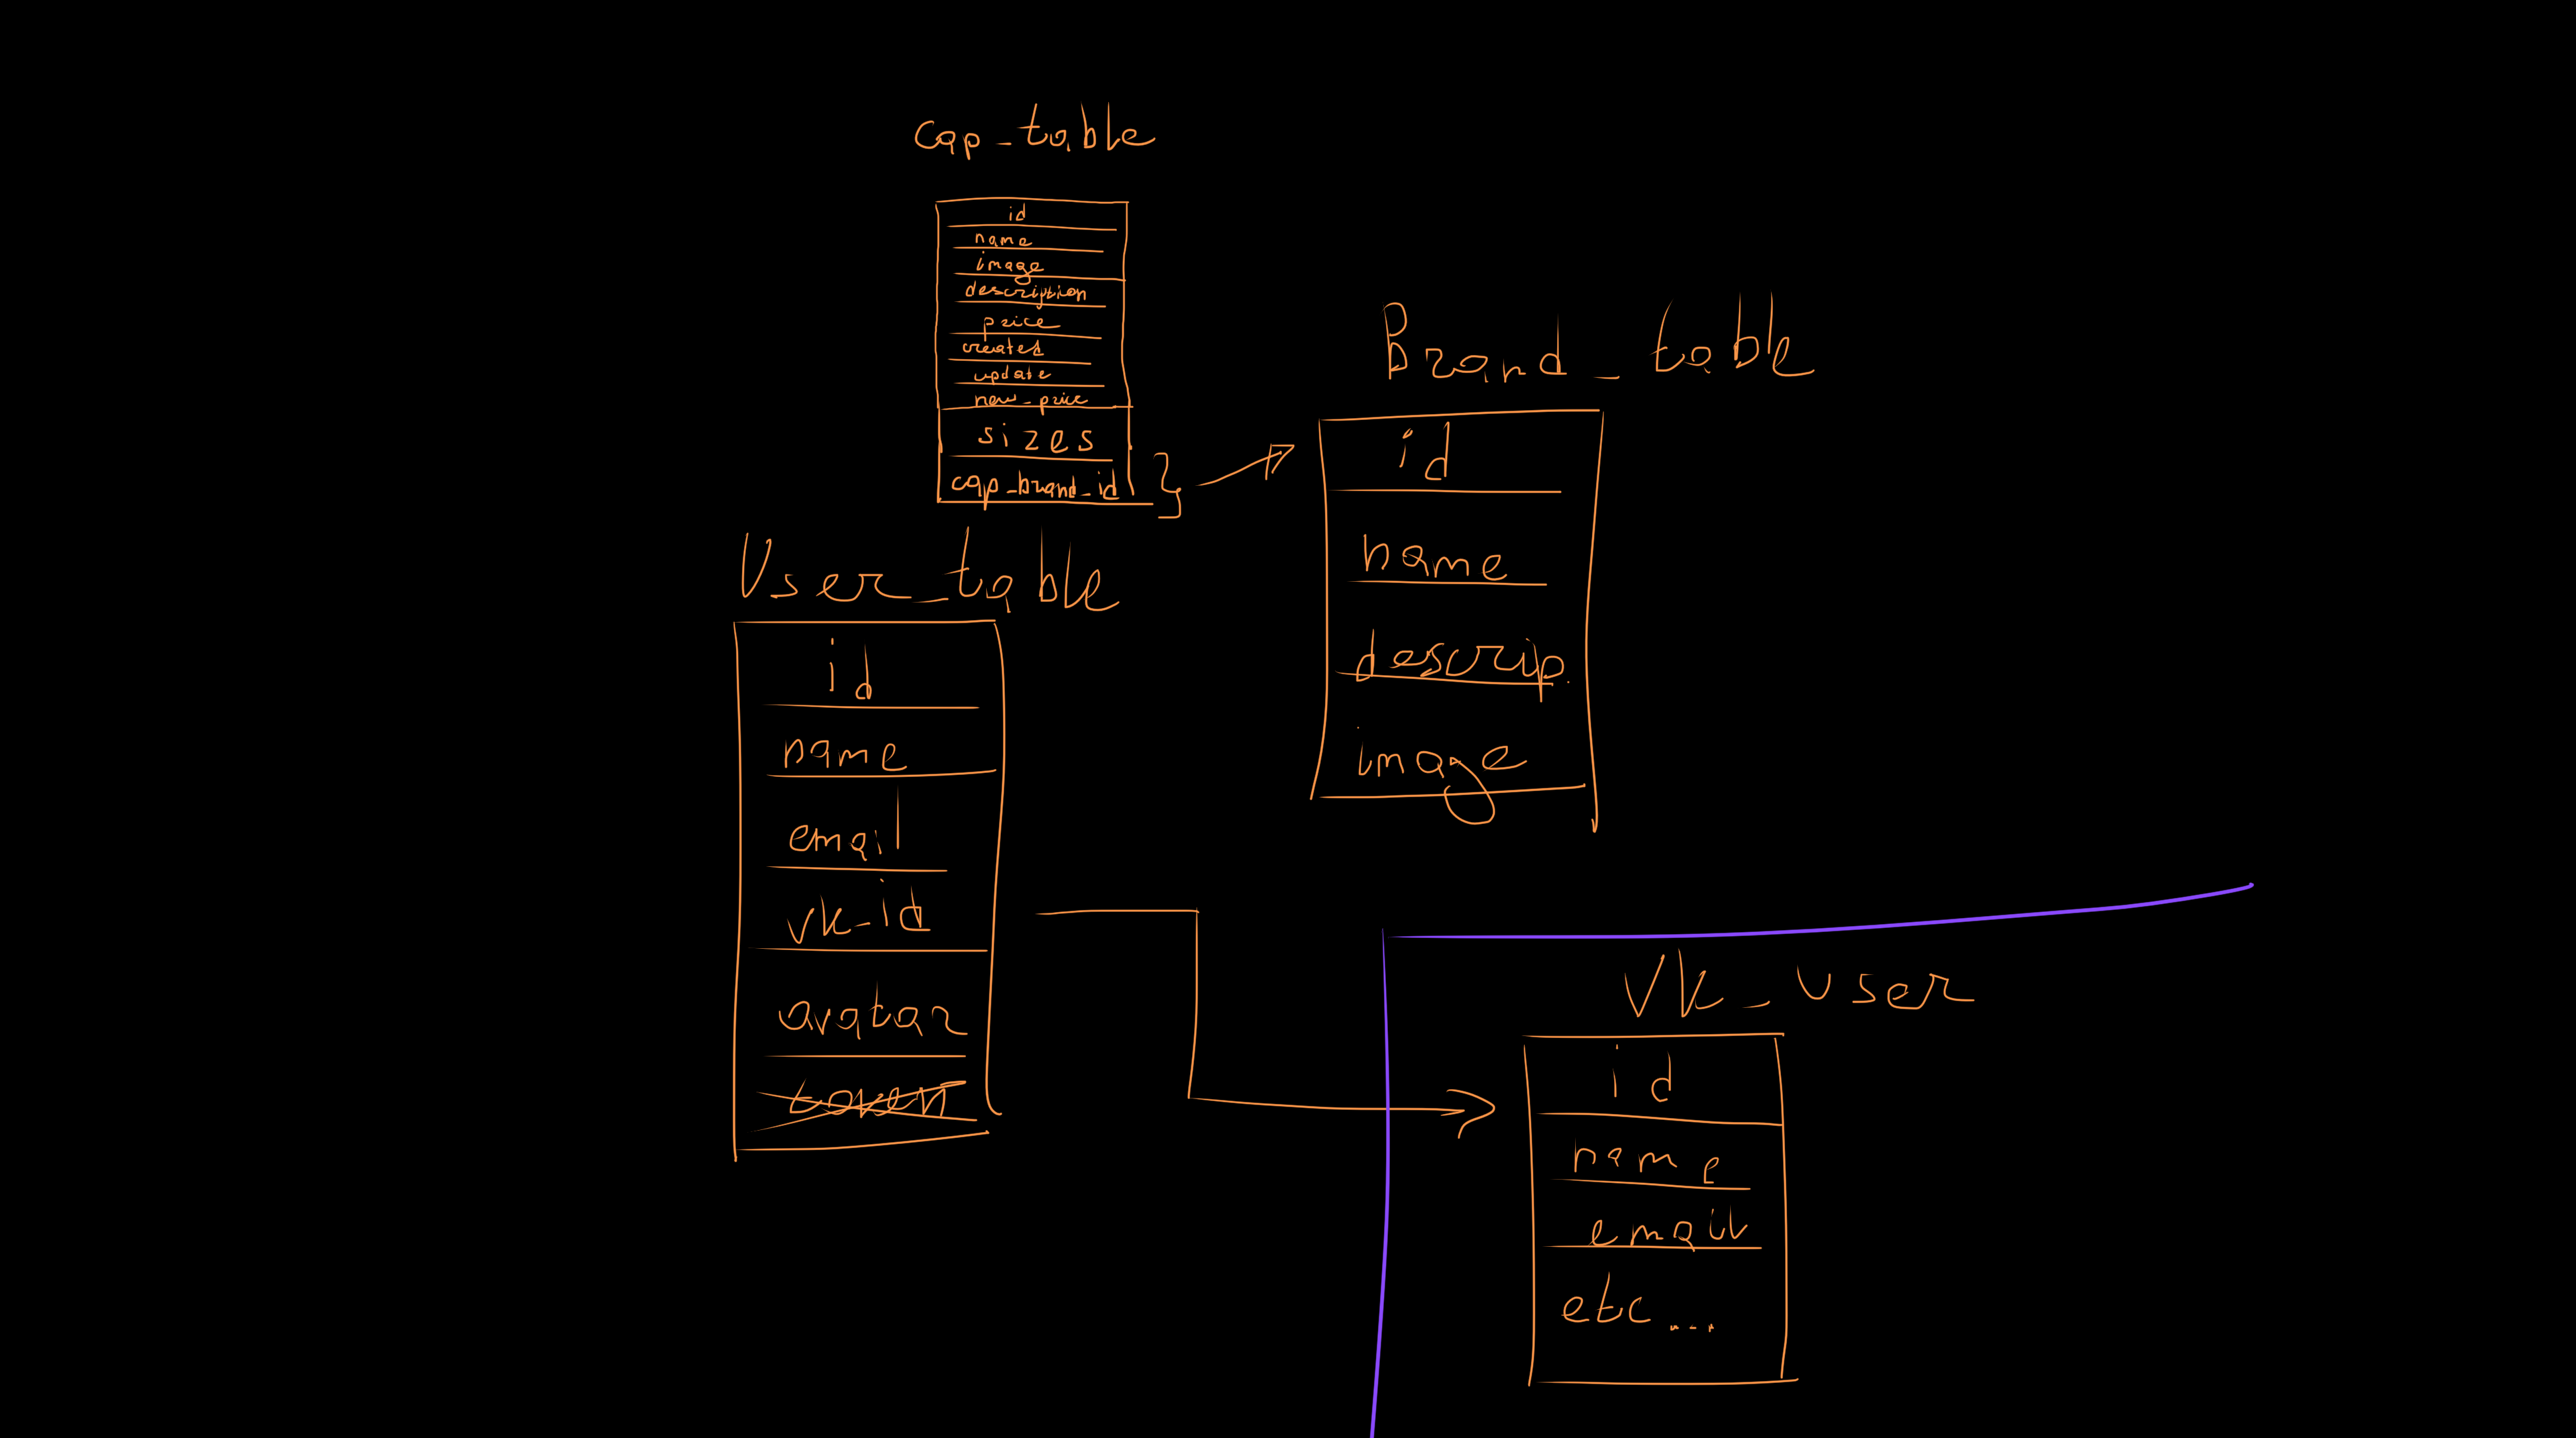 cap_table
id
name
image
description
price
created
update
new_price
sizes
cap_brand_id
Brand_table
id
name
descrip.
image
User_table
id
name
email
vk_id
avatar
token
Vk_user
id
name
email
etc...